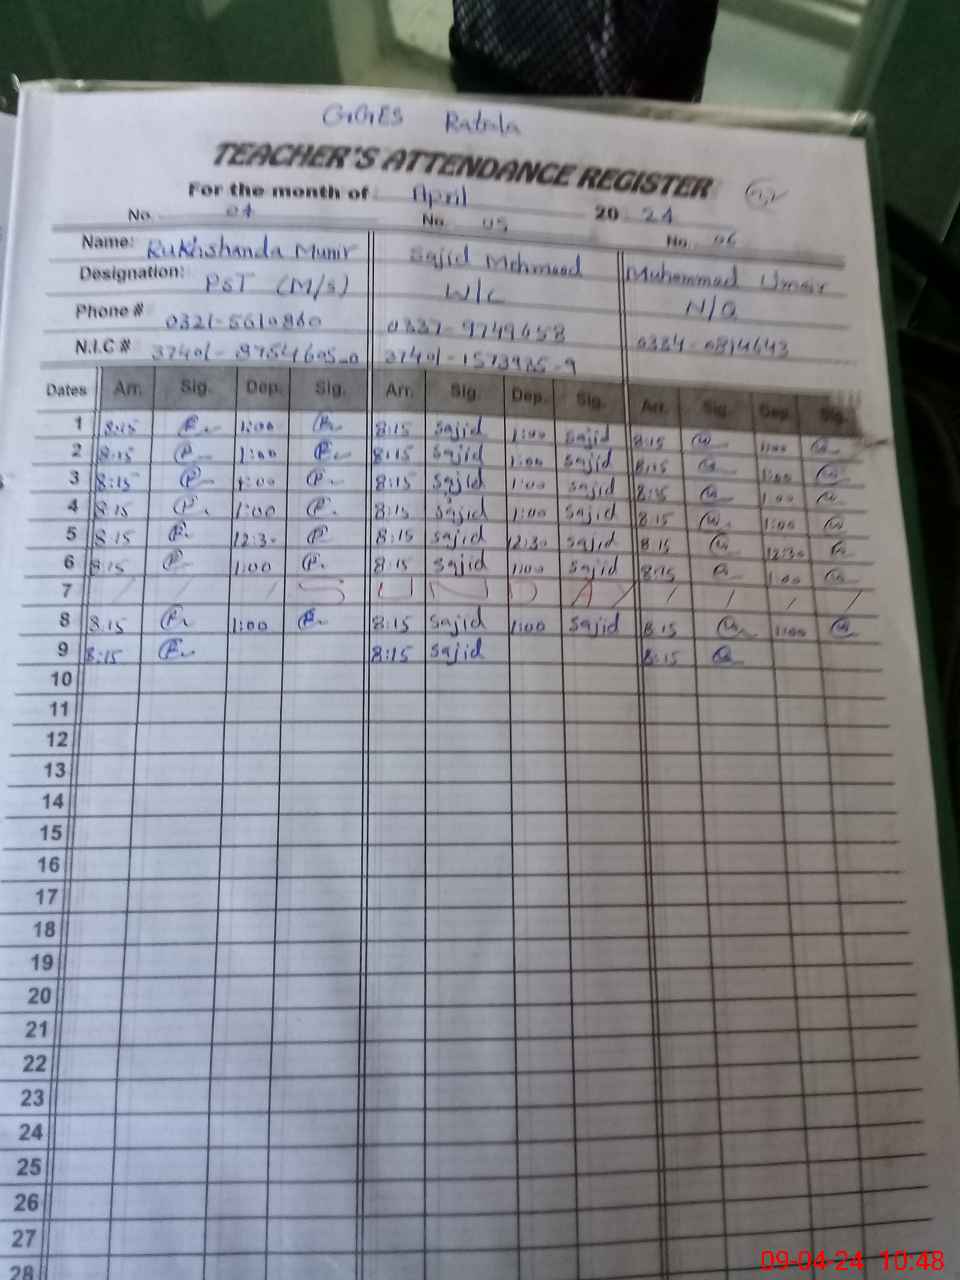 GGES Ratala
TEACHER'S ATTENDANCE REGISTER
For the month of April 20 24
No. 04 No. 05 No. 06
Name: Rukhshanda Munir Sajid Mehmood Muhammad Umair
Designation: PST (M/S) W/C N/Q
Phone # 0321-5610860 0337-9749658 0334-0814643
N.I.C # 37401-8754695-0 37401-1573925-9
Dates Arr. Sig. Dep. Sig. Arr. Sig. Dep. Sig. Arr. Sig. Dep. Sig.
1 8:15 1:00 8:15 Sajid 1:00 Sajid 8:15 1:00
2 8:15 1:00 8:15 Sajid 1:00 Sajid 8:15 1:00
3 8:15 1:00 8:15 Sajid 1:00 Sajid 8:15 1:00
4 8:15 1:00 8:15 Sajid 1:00 Sajid 8:15 1:00
5 8:15 12:30 8:15 Sajid 12:30 Sajid 8:15 12:30
6 8:15 1:00 8:15 Sajid 1:00 Sajid 8:15 1:00
7 / / / S U N D A Y / / / /
8 8:15 1:00 8:15 Sajid 1:00 Sajid 8:15 1:00
9 8:15 8:15 Sajid 8:15
10
11
12
13
14
15
16
17
18
19
20
21
22
23
24
25
26
27
28
09-04-24 10:48